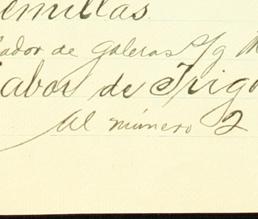 emillas
ador de galeras S/g M
Labor de Trigo
Al número 2